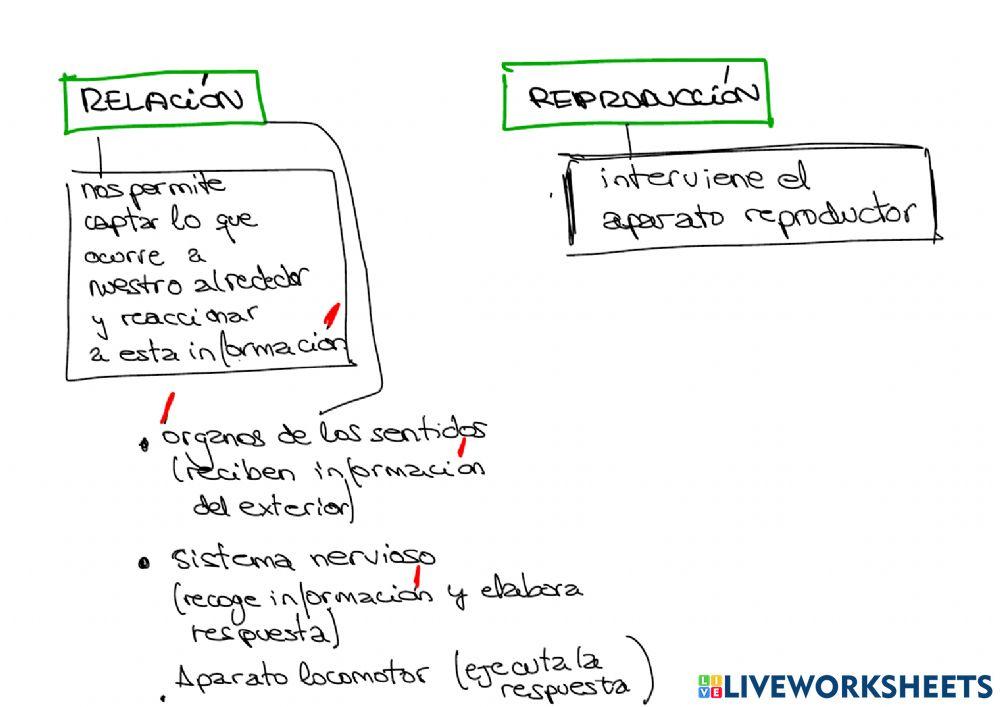 RELACIÓN
nos permite
captar lo que
ocurre a
nuestro alrededor
y reaccionar
a esta información
• órganos de los sentidos
(reciben información
del exterior)
• sistema nervioso
(recoge información y elabora
respuesta)
. Aparato locomotor (ejecuta la
respuesta)
REPRODUCCIÓN
interviene el
aparato reproductor
LIVE LIVEWORKSHEETS